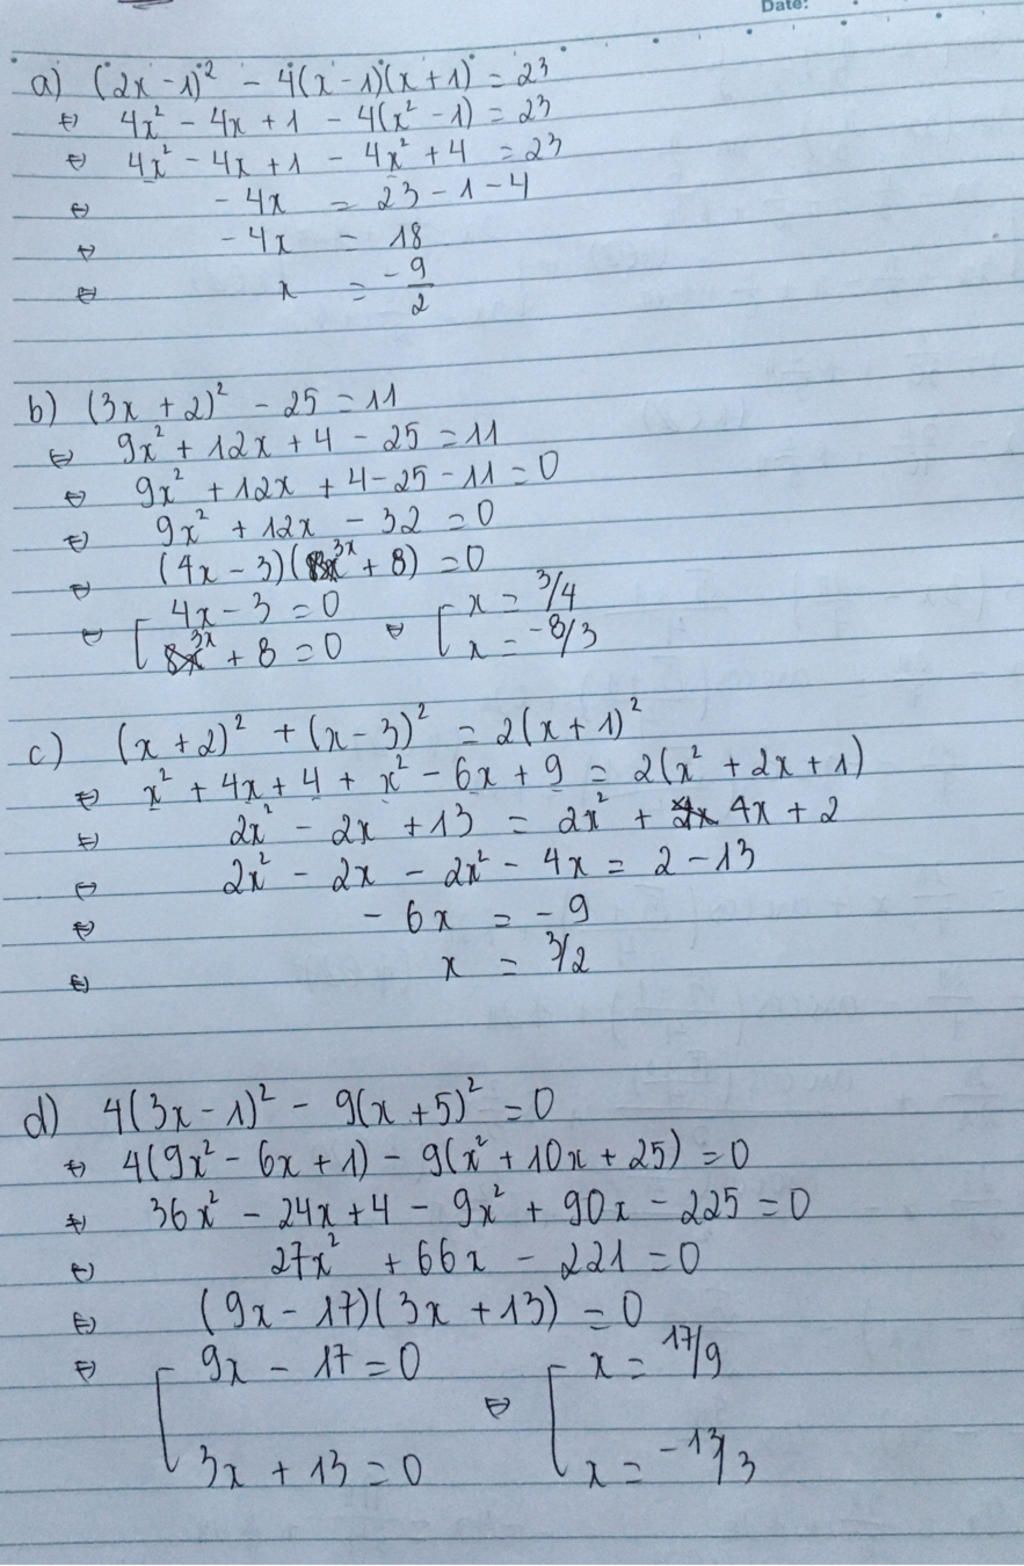 Date:
a) (2x - 1)² - 4(x - 1)(x + 1) = 23
⇔ 4x² - 4x + 1 - 4(x² - 1) = 23
⇔ 4x² - 4x + 1 - 4x² + 4 = 23
⇔ - 4x = 23 - 1 - 4
⇔ - 4x = 18
⇔ x = -9/2
b) (3x + 2)² - 25 = 11
⇔ 9x² + 12x + 4 - 25 = 11
⇔ 9x² + 12x + 4 - 25 - 11 = 0
⇔ 9x² + 12x - 32 = 0
⇔ (4x - 3)(3x + 8) = 0
⇔ [ 4x - 3 = 0 ⇔ [ x = 3/4
3x + 8 = 0 x = -8/3
c) (x + 2)² + (x - 3)² = 2(x + 1)²
⇔ x² + 4x + 4 + x² - 6x + 9 = 2(x² + 2x + 1)
⇔ 2x² - 2x + 13 = 2x² + 4x + 2
⇔ 2x² - 2x - 2x² - 4x = 2 - 13
⇔ - 6x = - 9
⇔ x = 3/2
d) 4(3x - 1)² - 9(x + 5)² = 0
⇔ 4(9x² - 6x + 1) - 9(x² + 10x + 25) = 0
⇔ 36x² - 24x + 4 - 9x² + 90x - 225 = 0
⇔ 27x² + 66x - 221 = 0
⇔ (9x - 17)(3x + 13) = 0
⇔ [ 9x - 17 = 0 ⇔ [ x = 17/9
3x + 13 = 0 x = -13/3